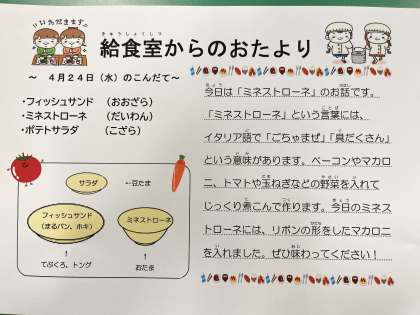 いただきます!!
給食室からのおたより
きゅうしょくしつ
～ 4月24日（水）のこんだて～
・フィッシュサンド （おおざら）
・ミネストローネ （だいわん）
・ポテトサラダ （こざら）
サラダ
←豆たま
フィッシュサンド
（まるパン、ホキ）
ミネストローネ
↑
↑
てぶくろ、トング
おたま
今日は「ミネストローネ」のお話です。
「ミネストローネ」という言葉には、
イタリア語で「ごちゃまぜ」「具だくさん」
という意味があります。ベーコンやマカロ
ニ、トマトや玉ねぎなどの野菜を入れて
じっくり煮こんで作ります。今日のミネス
トローネには、リボンの形をしたマカロニ
を入れました。ぜひ味わってください！